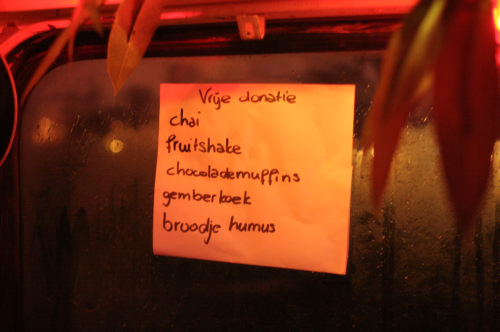 Vrije donatie
chai
fruitshake
chocolademuffins
gemberkoek
broodje humus